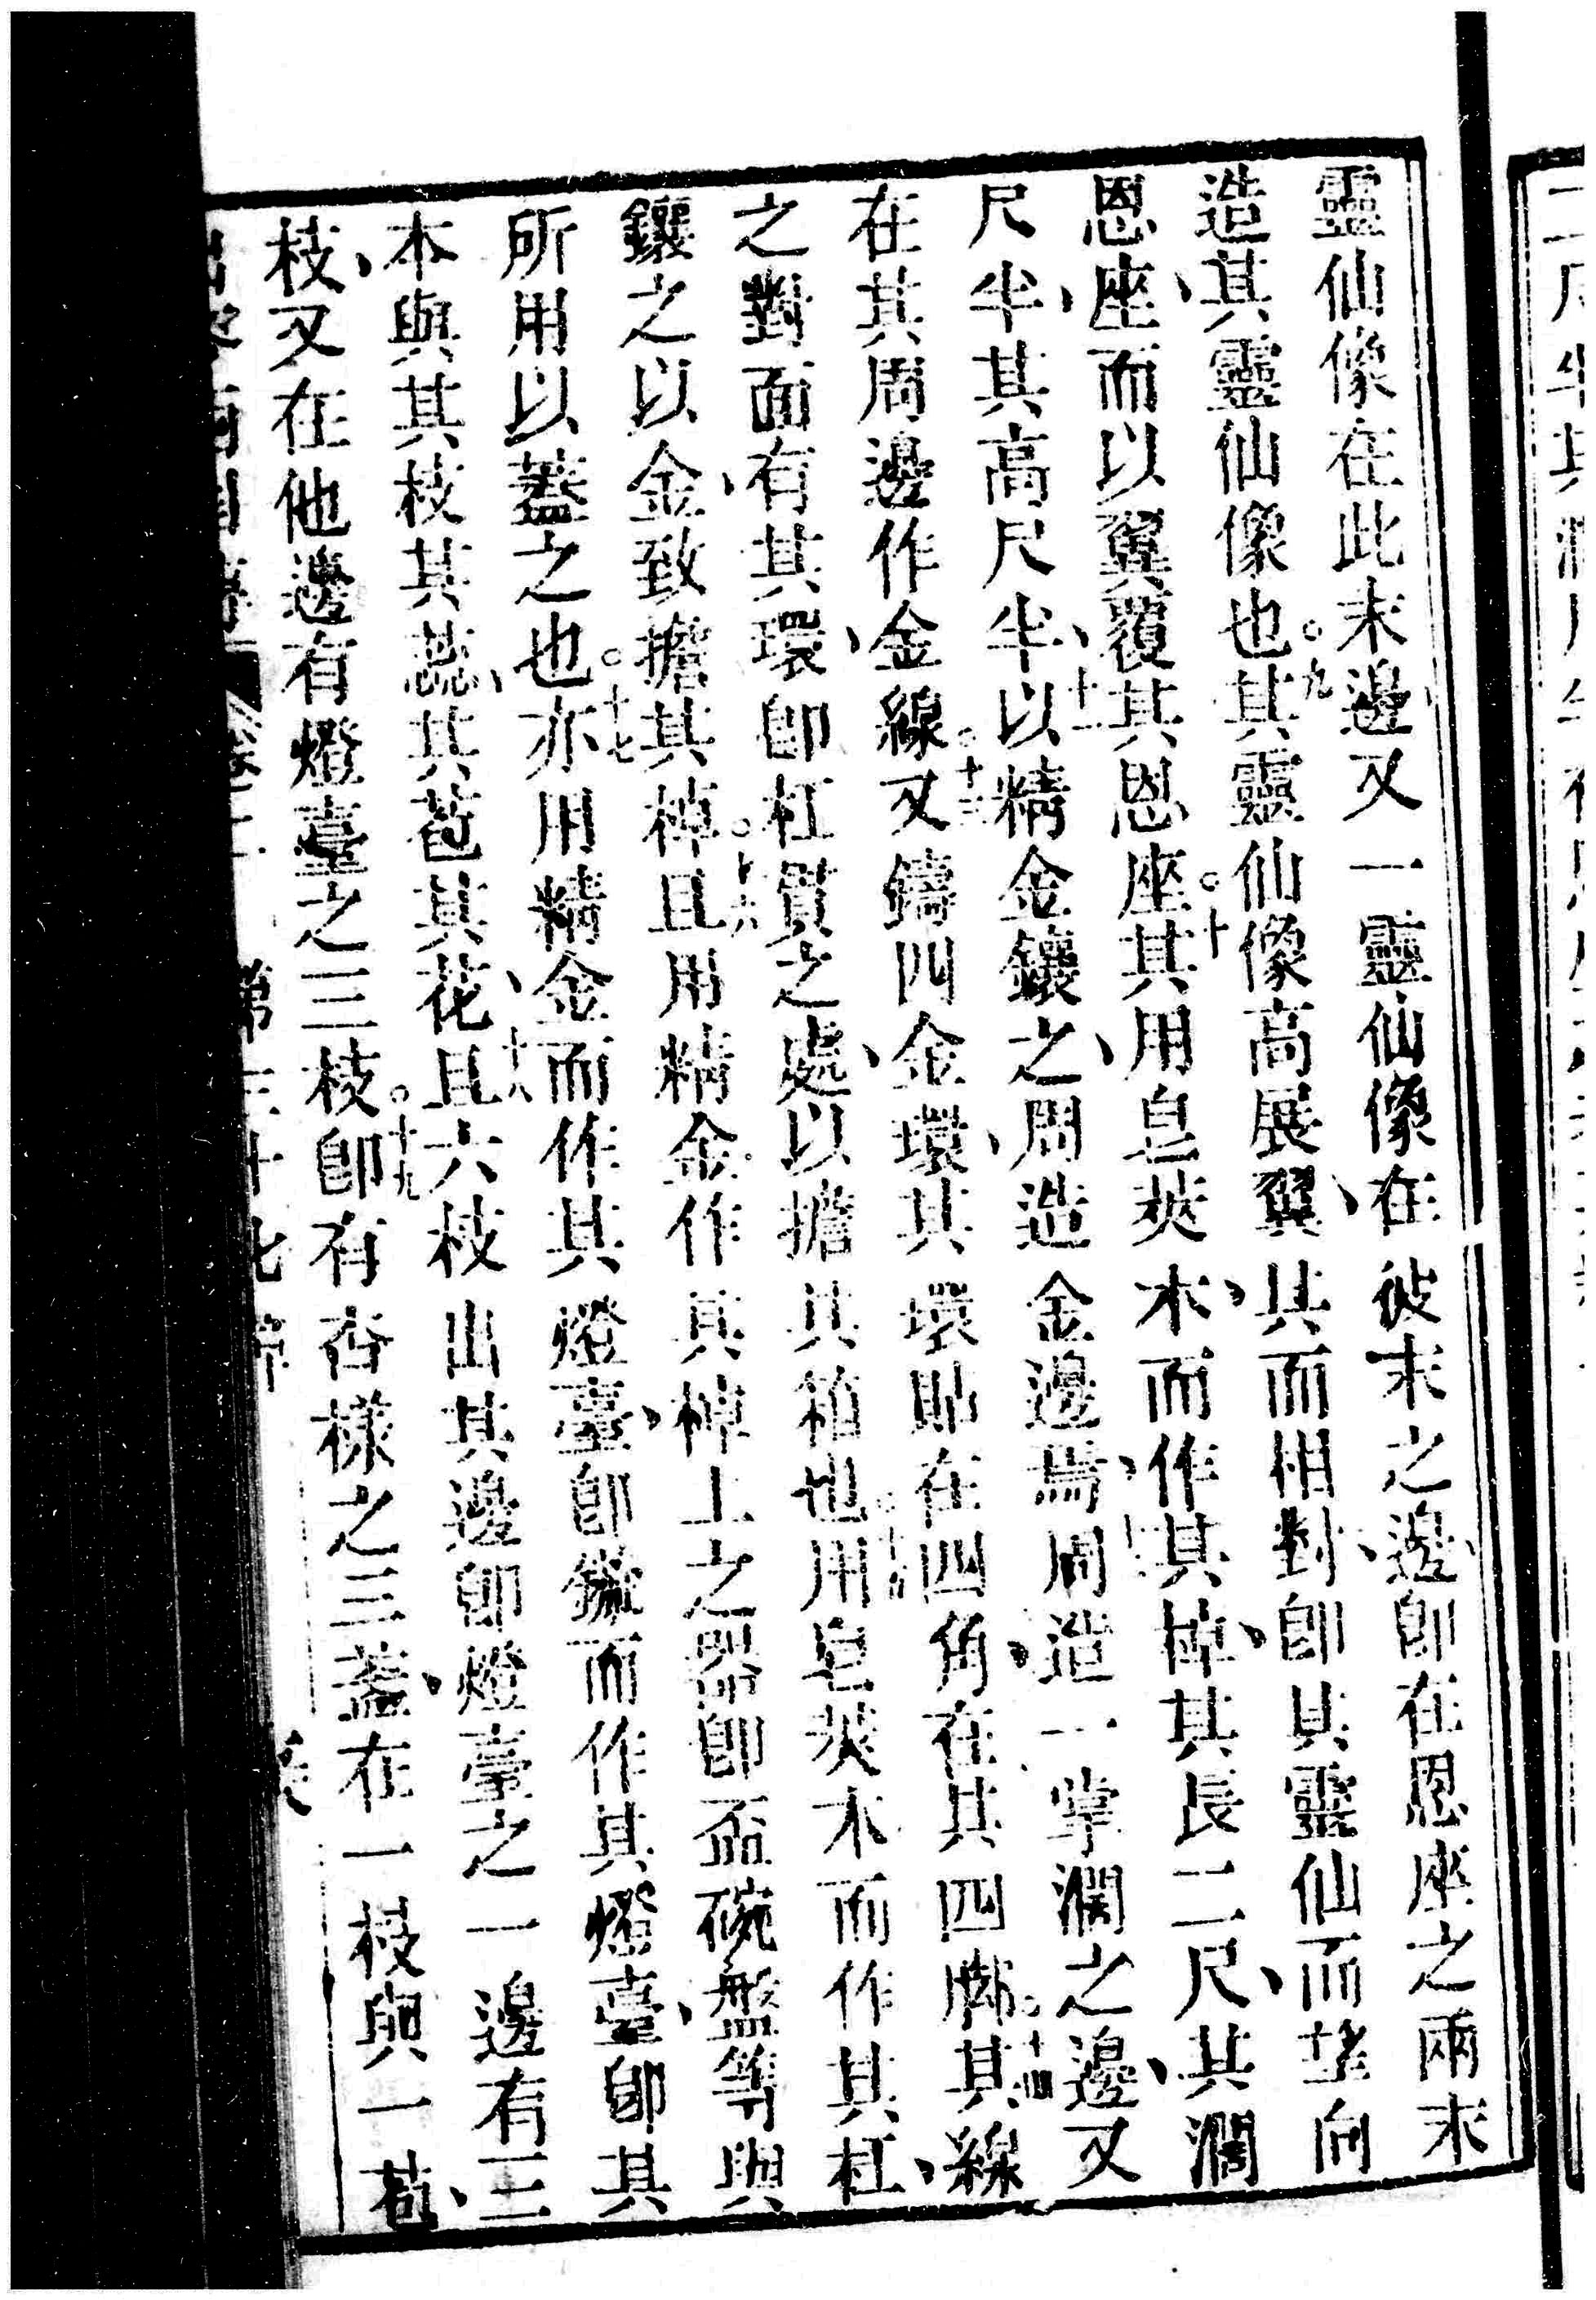 靈仙像在此末邊又一靈仙像在彼末之邊卽在恩座之兩末
造其靈仙像也○九其靈仙像高展翼、共而相對、卽其靈仙而望向
恩座、而以翼覆其恩座○十其用皂莢木、而作其棹、其長二尺、其濶
尺半、其高尺半、十一以精金鑲之、周造金邊焉、周造一掌濶之邊、又
在其周邊作金線○十三又鑄四金環、其環貼在四角、在其四脚○十四其線
之對面有其環、卽杠貫之處、以擔其箱也用皂莢木而作其杠、
鑲之以金、致擔其棹○十六且用精金作其棹上之器卽盃碗盤等與
所用以蓋之也○十七亦用精金而作其燈臺、卽鎚而作其燈臺、卽其
本與其枝其蕊、其苞其花、十八且六枝出其邊卽燈臺之一邊有三
枝、又在他邊有燈臺之三枝○十九卽有杏樣之三盞、在一枝與一苞、